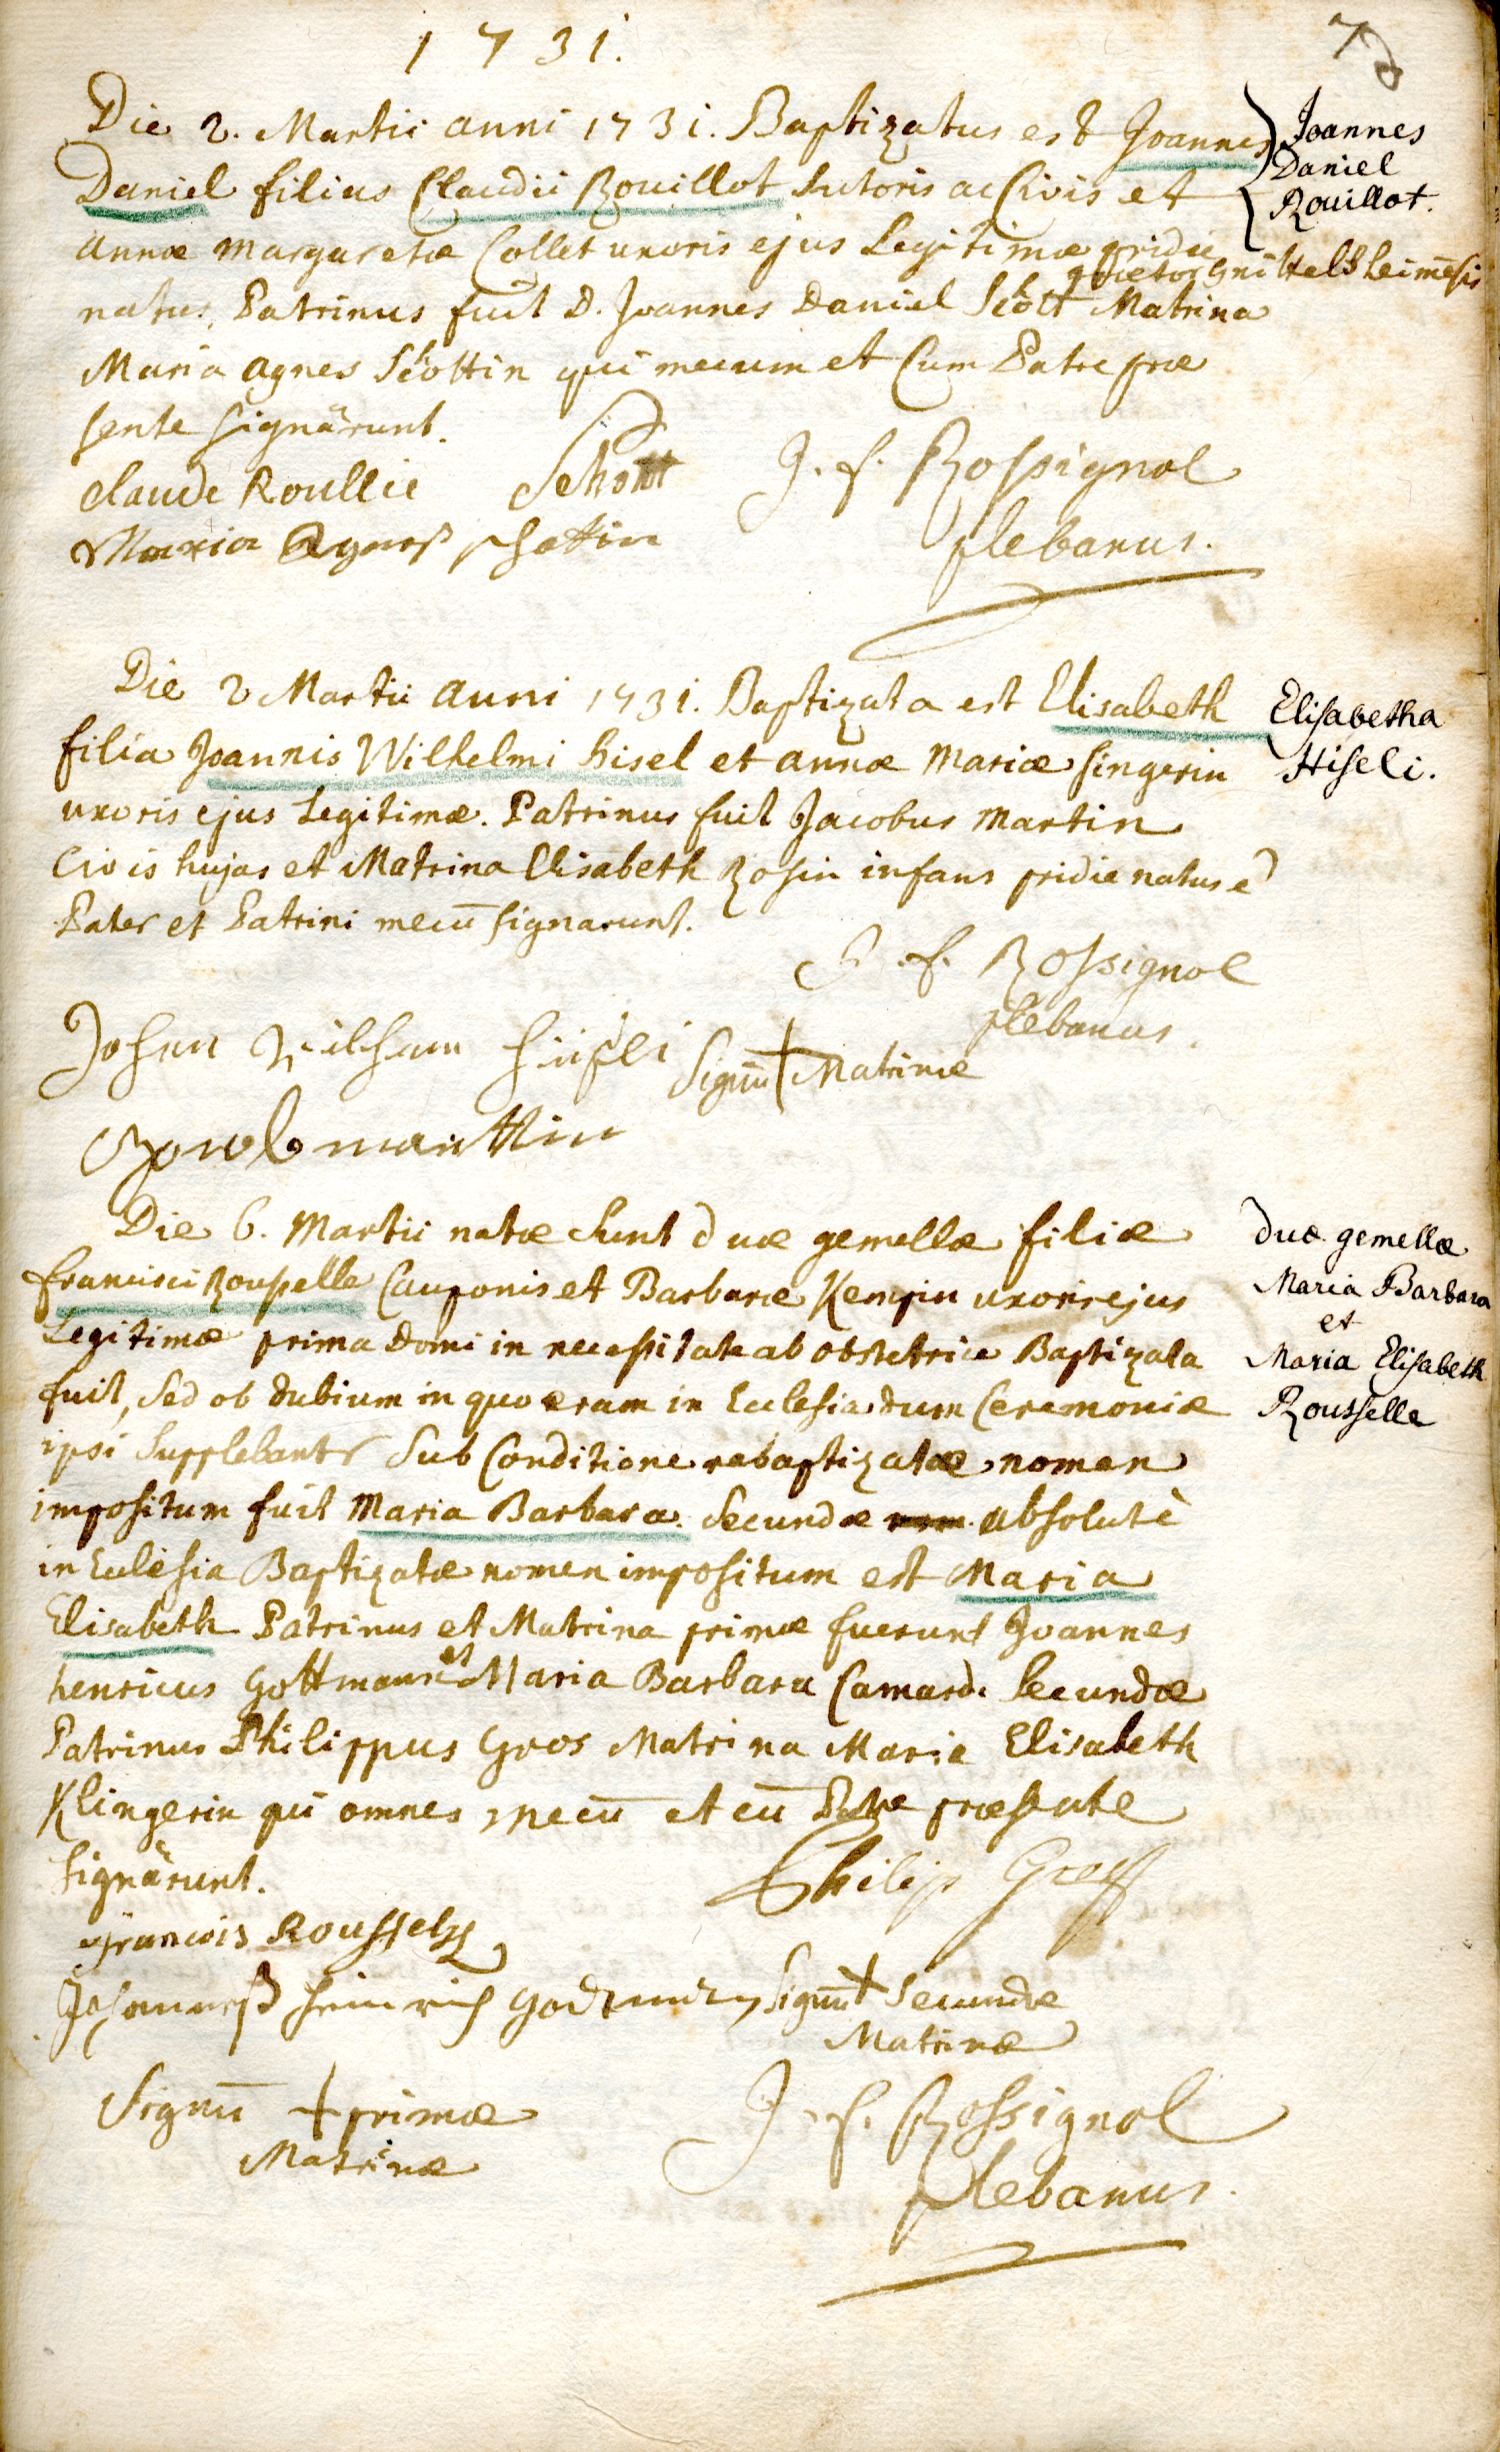 1731.
Die 2. Martii anni 1731. Baptizatus est Joannes
Daniel filius Claudii Rouillot sutoris ac Civis et
annæ margaretæ Collet uxoris ejus Legitimæ pridie
natus. Patrinus fuit D. Joannes Daniel Schott Matrina
Maria agnes Schottin qui mecum et Cum Patre præ
sente signarunt.
Claude Roullie Schott J. f. Rossignol
Maria Agneß schottin plebanus.
Joannes
Daniel
Rouillot.
Die 2 Martii anni 1731. Baptizata est Elisabeth
filia Joannis Wilhelmi hisel et annæ Mariæ singerin
uxoris ejus Legitimæ. Patrinus fuit Jacobus Martin
Civis hujas et Matrina Elisabeth Rosin infans pridie natus ē
Pater et Patrini mecū signarunt.
J. f. Rossignol
plebanus.
Johan Wilham hissli Signū + Matrinæ
marttin
Elisabetha
Hiseli.
Die 6. Martii natæ sunt duæ gemellæ filiæ
francisci Rousselle Cauponis et Barbaræ Kempin uxoris ejus
Legitimæ prima domi in necessitate ab obstetrice Baptizata
fuit, sed ob dubium in quo eram in Ecclesia dum Ceremoniæ
ipsi supplebantr sub Conditione rebaptizatæ nomen
impositum fuit Maria Barbara. Secundæ absolutè
in Ecclesia Baptizatæ nomen impositum est Maria
Elisabeth Patrinus et Matrina primæ fuerunt Joannes
henricus Gottmann et Maria Barbara Camard. Secundæ
Patrinus Philippus Gros Matrina Maria Elisabeth
Klingerin qui omnes mecū et cū Patre præsente
signarunt. Philip Groß
francois Rousselle
Johanneß heinrich Signū + Secundæ
Matrinæ
Signū + primæ
Matrinæ
J. f. Rossignol
plebanus.
duæ gemellæ
Maria Barbara
et
Maria Elisabeth
Rousselle